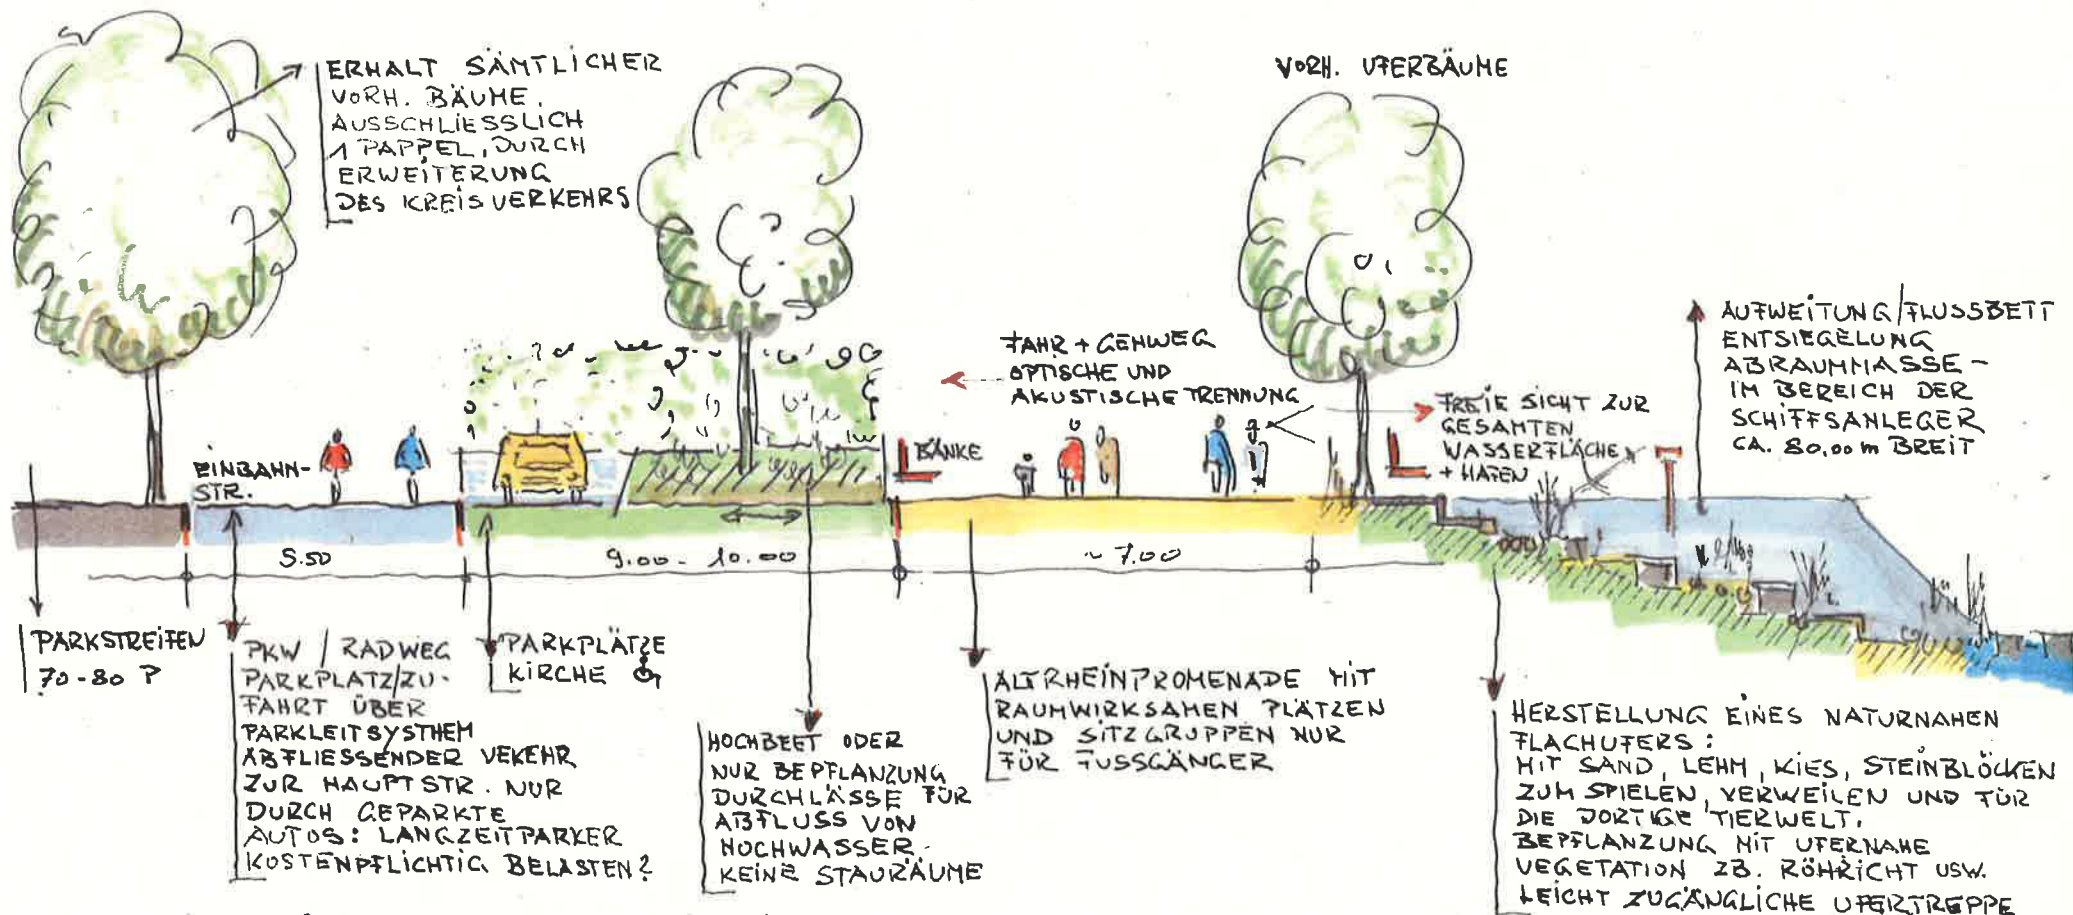 ERHALT SÄMTLICHER
VORH. BÄUME.
AUSSCHLIESSLICH
1 PAPPEL, DURCH
ERWEITERUNG
DES KREISVERKEHRS
VORH. UFERBÄUME
AUFWEITUNG/FLUSSBETT
ENTSIEGELUNG
ABRAUMMASSE -
IM BEREICH DER
SCHIFFSANLEGER
CA. 80,00 m BREIT
FAHR + GEHWEG
OPTISCHE UND
AKUSTISCHE TRENNUNG
FREIE SICHT ZUR
GESAMTEN
WASSERFLÄCHE
+ HAFEN
EINBAHN-
STR.
BÄNKE
5.50
9.00 - 10.00
~ 7.00
PARKSTREIFEN
70-80 P
PKW / RADWEG
PARKPLATZ/ZU-
FAHRT ÜBER
PARKLEITSYSTHEM
ABFLIESSENDER VEKEHR
ZUR HAUPTSTR. NUR
DURCH GEPARKTE
AUTOS: LANGZEITPARKER
KOSTENPFLICHTIG BELASTEN?
PARKPLÄTZE
KIRCHE
HOCHBEET ODER
NUR BEPFLANZUNG
DURCHLÄSSE FÜR
ABFLUSS VON
HOCHWASSER.
KEINE STAURÄUME
ALTRHEINPROMENADE MIT
RAUMWIRKSAMEN PLÄTZEN
UND SITZGRUPPEN NUR
FÜR FUSSGÄNGER
HERSTELLUNG EINES NATURNAHEN
FLACHUFERS:
MIT SAND, LEHM, KIES, STEINBLÖCKEN
ZUM SPIELEN, VERWEILEN UND FÜR
DIE DORTIGE TIERWELT.
BEPFLANZUNG MIT UFERNAHE
VEGETATION ZB. RÖHRICHT USW.
LEICHT ZUGÄNGLICHE UFERTREPPE